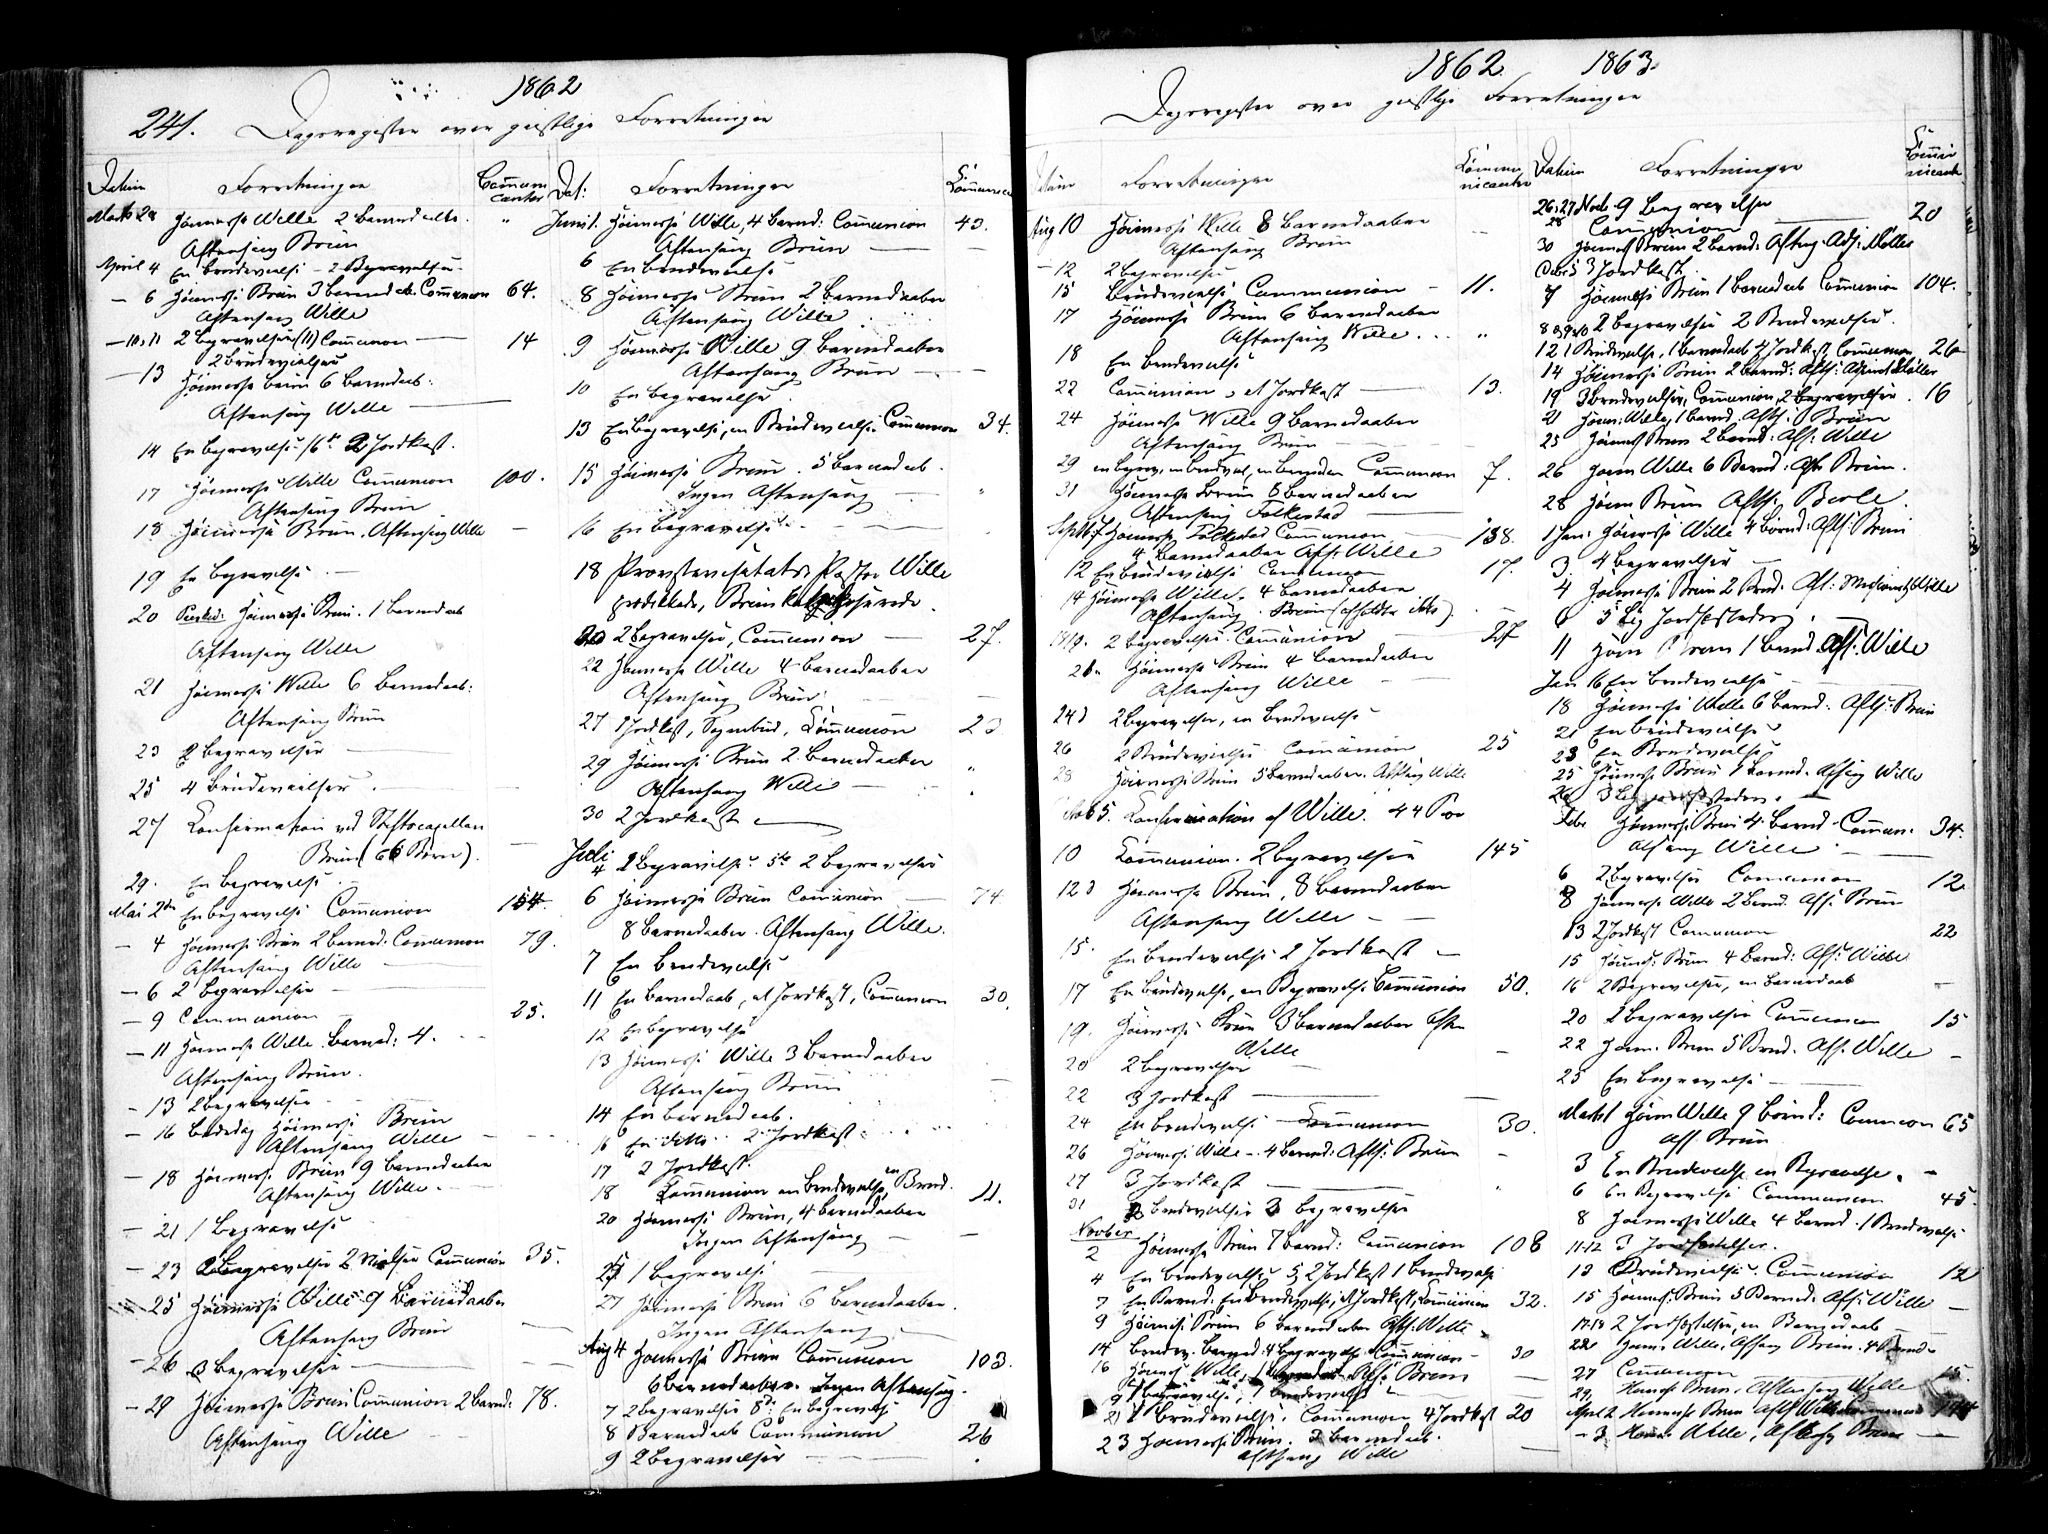 1862
241. Dagsregister over geistlige Forretninger
Datum Forretninger Communicanter
Marts 28 Høimesse Wille 2 Barnedaabe. "
Aftensang Bruun
April 4 En Brudevielse - 2 Begravelser
- 6 Høimesse Bruun 3 Barned. Communion 64.
Aftensang Wille
- 10, 11 2 Begravelser (11) Communion 14
2 Brudevielser
- 13 Høimesse Bruun 6 Barnedaab:
Aftensang Wille
14 En Begravelse 16de 2 Jordkast.
17 Høimesse Wille Communion 100.
Aftensang Bruun
18 Høimesse Bruun. Aftensang Wille
19 En Begravelse
20 Høimesse Bruun. 1 Barnedaab
Aftensang Wille
21 Høimesse Wille 6 Barnedaab:
Aftensang Bruun
23 2 Begravelser
25 4 Brudevielser
27 Konfirmation ved Stiftscapellan
Bruun (66 Børn).
29. En Begravelse
Mai 2den En Begravelse Communion 154.
- 4 Høimesse Bruun 2 Barned. Communion 79.
Aftensang Wille
- 6 2 Begravelser
- 9 Communion 25.
- 11 Høimesse Wille. Barned: 4.
Aftensang Bruun.
- 13 2 Begravelser
- 16 Bededag Høimesse Bruun
Aftensang Wille
- 18 Høimesse Bruun 9 Barnedaaber
Aftensang Wille.
- 21 1 Begravelse
- 23 2 Begravelser 2 Vielser Communion 35.
- 25 Høimesse Wille 9 Barnedaaber
Aftensang Bruun
- 26 3 Begravelser
- 29 Høimesse Bruun Communion 2 Barned: 78.
Aftensang Wille
Dat: Forretninger Communic
Juni 1. Høimesse Wille, 4 Barned: Communion 43.
Aftensang Bruun
6 En Brudevielse
8 Høimesse Bruun 2 Barnedaaber
Aftensang Wille
9 Høimesse Wille 9 Barnedaaber
Aftensang Bruun
10 En Begravelse
13 En Begravelse, en Brudevielse. Communion 34.
15 Høimesse Bruun. 5 Barnedaab.
Ingen Aftensang
16 En Begravelse
18 Provstevisitats. Pastor Wille
prædikede, Bruun katechiserede.
20 2 Begravelser, Communion 27.
22 Høimesse Wille 4 Barnedaaber
Aftensang Bruun
27 1 Jordkast, Sognebud, Communion 23
29 Høimesse Bruun 2 Barnedaaber
Aftensang Wille
30 2 Jordkast
Juli
4 2 Begravelser 5te 2 Begravelser
6 Høimesse Bruun Communion 74
8 Barnedaaber. Aftensang Wille.
7 En Brudevielse
11 En Barnedaab, et Jordkast, Communion 30.
12 En Begravelse
13 Høimesse Wille 3 Barnedaaber
Aftensang Bruun
14 En Barnedaab.
16 En ditto 2 Jordkast
17 2 Jordkast.
18 Communion en Brudevielse en Barned. 11.
20 Høimesse Bruun, 4 Barnedaaber
Ingen Aftensang
25 1 Begravelse
27 Høimesse Bruun 6 Barnedaaber.
Ingen Aftensang
Aug 4 Høimesse Bruun Communion 103.
6 Barnedaaber. Ingen Aftensang.
7 2 Begravelser 8de En Begravelse
8 Barnedaab Communion 26
9 2 Begravelser
1862 1863
Dagsregister over geistlige Forretninger
Datum Forretninger Communicanter
Aug 10 Høimesse Wille 8 Barnedaaber
Aftensang Bruun
- 12 2 Begravelser
15 Brudevielse Communion 11.
17 Høimesse Bruun 6 Barnedaaber
Aftensang Wille
18 En Brudevielse
22 Communion, et Jordkast 13.
24 Høimesse Wille 9 Barnedaaber
Aftensang Bruun
29 en Begrav, en Brudviel, en Barnedaab Communion 7.
31 Høimesse Bruun 8 Barnedaaber
Aftensang Folkestad
Septb 7 Høimesse Folkestad Communion 138.
4 Barnedaaber Afts. Wille
12 En Brudevielse Communion 17.
14 Høimesse Wille. 4 Barnedaaber
Aftensang. Bruun (afholdtes ikke).
18, 19. 2 Begravelser. Communion 27
21. Høimesse Bruun 4 Barnedaaber
Aftensang Wille
24 2 Begravelser, en Brudevielse
26 2 Brudevielser Communion 25
28 Høimesse Bruun 5 Barnedaaber. Aftsang Wille
Octob 5. Konfirmation af Wille. 44 Børn
10 Communion. 2 Begravelser 145
12 Høimesse Bruun, 8 Barnedaaber
Aftensang Wille
15. En Brudevielse 2 Jordkast
17 En Brudevielse, en Begravelse Communion 50.
19. Høimesse Bruun 3 Barnedaaber Aften
Wille
20 2 Begravelser
22 3 Jordkast
24 En Brudevielse Communion 30.
26 Høimesse Wille. 4 Barned: Afts: Bruun
27 3 Jordkast
31 2 Brudevielser 2 Begravelser
Novber
2 Høimesse Bruun 7 Barned: Communion 108
4 En Brudevielse 5 2 Jordkast 1 Brudevielse
7 En Barned. En Brudevielse, et Jordkast, Communion 32.
9 Høimes. Bruun 6 Barnedaaber Afts. Wille
14 Brudev. Barned. 4 Begravelse Communion 30
16 Høimes Wille, Barnedaab Afts Bruun
19 1 Begravelse, 1 Brudevielse
21 Brudevielse, Communion 4 Jordkast 20
23 Høimesse Bruun. 3 Barnedaab.
Aftsang Wille
Datum Forretninger Communicanter
26, 27 Novb. 9 Begravelser
28 Communion 20
30 Høimes Bruun 2 Barned: Aftsg. Adj. Møller
Decb 5 3 Jordkast
7 Høimesse Bruun 1 Barnedaab Communion 104.
8, 9, 10 2 Begravelser 2 Brudevielser.
12 1 Brudevielse, 1 Barnedaab 4 Jordkast, Communion 26
14 Høimesse Bruun 2 Barned: Afts: Adjunct Møller
19 3 Brudevielser, Communion, 2 Begravelser. 16
21 Høim: Wille, 1 Barned. Afts: Bruun
25 Høimes Bruun 2 Barned: Afts: Wille
26 Høim Wille 6 Barned: Afts Bruun.
28 Høim Bruun Afts: Berle
1 Jan: Høimesse Wille 4 Barned: Afts: Bruun
3 4 Begravelser
4 Høimesse Bruun 2 Barned. Afts: Wille
6 5 Jordfæstelser.
11 Høim Bruun 1 Barned. Afts: Wille
Jan 16 En Brudevielse
18 Høimesse Wille 6 Barned: Afts: Bruun
21 En Brudevielse
23 En Brudevielse
25 Høimesse Bruun 1 Barned. Aftsang Wille
Febr Høimesse Bruun 4 Barned. Commun. 34.
Aftsang Wille
6 2 Begravelser Communion 12
8 Høimesse Wille 2 Barned. Afts. Bruun
13 2 Jordkast Communion 22
15 Høimes. Bruun 4 Barned: Afts: Wille
16 2 Begravelser, en Barnedaab
20 2 Begravelser Communion 15
22 Høim. Bruun 5 Barned. Afts. Wille
25 En Begravelse
Marts 1 Høim Wille 9 Barned: Communion 65
Afts Bruun
3 En Brudevielse en Begravelse.
6 En Begravelse Communion 45.
8 Høimesse Wille 4 Barned. 1 Brudevielse
11-12 3 Jordfæstelser.
13 Brudevielse. Communion 12
15 Høimes. Bruun 5 Barned. Afts. Wille
17-19 2 Jordfæstelser, en Barnedaab
22 Høim. Wille, Aftsang Bruun. 4 Barned
27 Communion 15.
29 Høimes Bruun. Aftensang Wille
April 2 Høimesse Bruun Afts Wille Communion 144
- 3 Høimes Wille, Aftsang Bruun